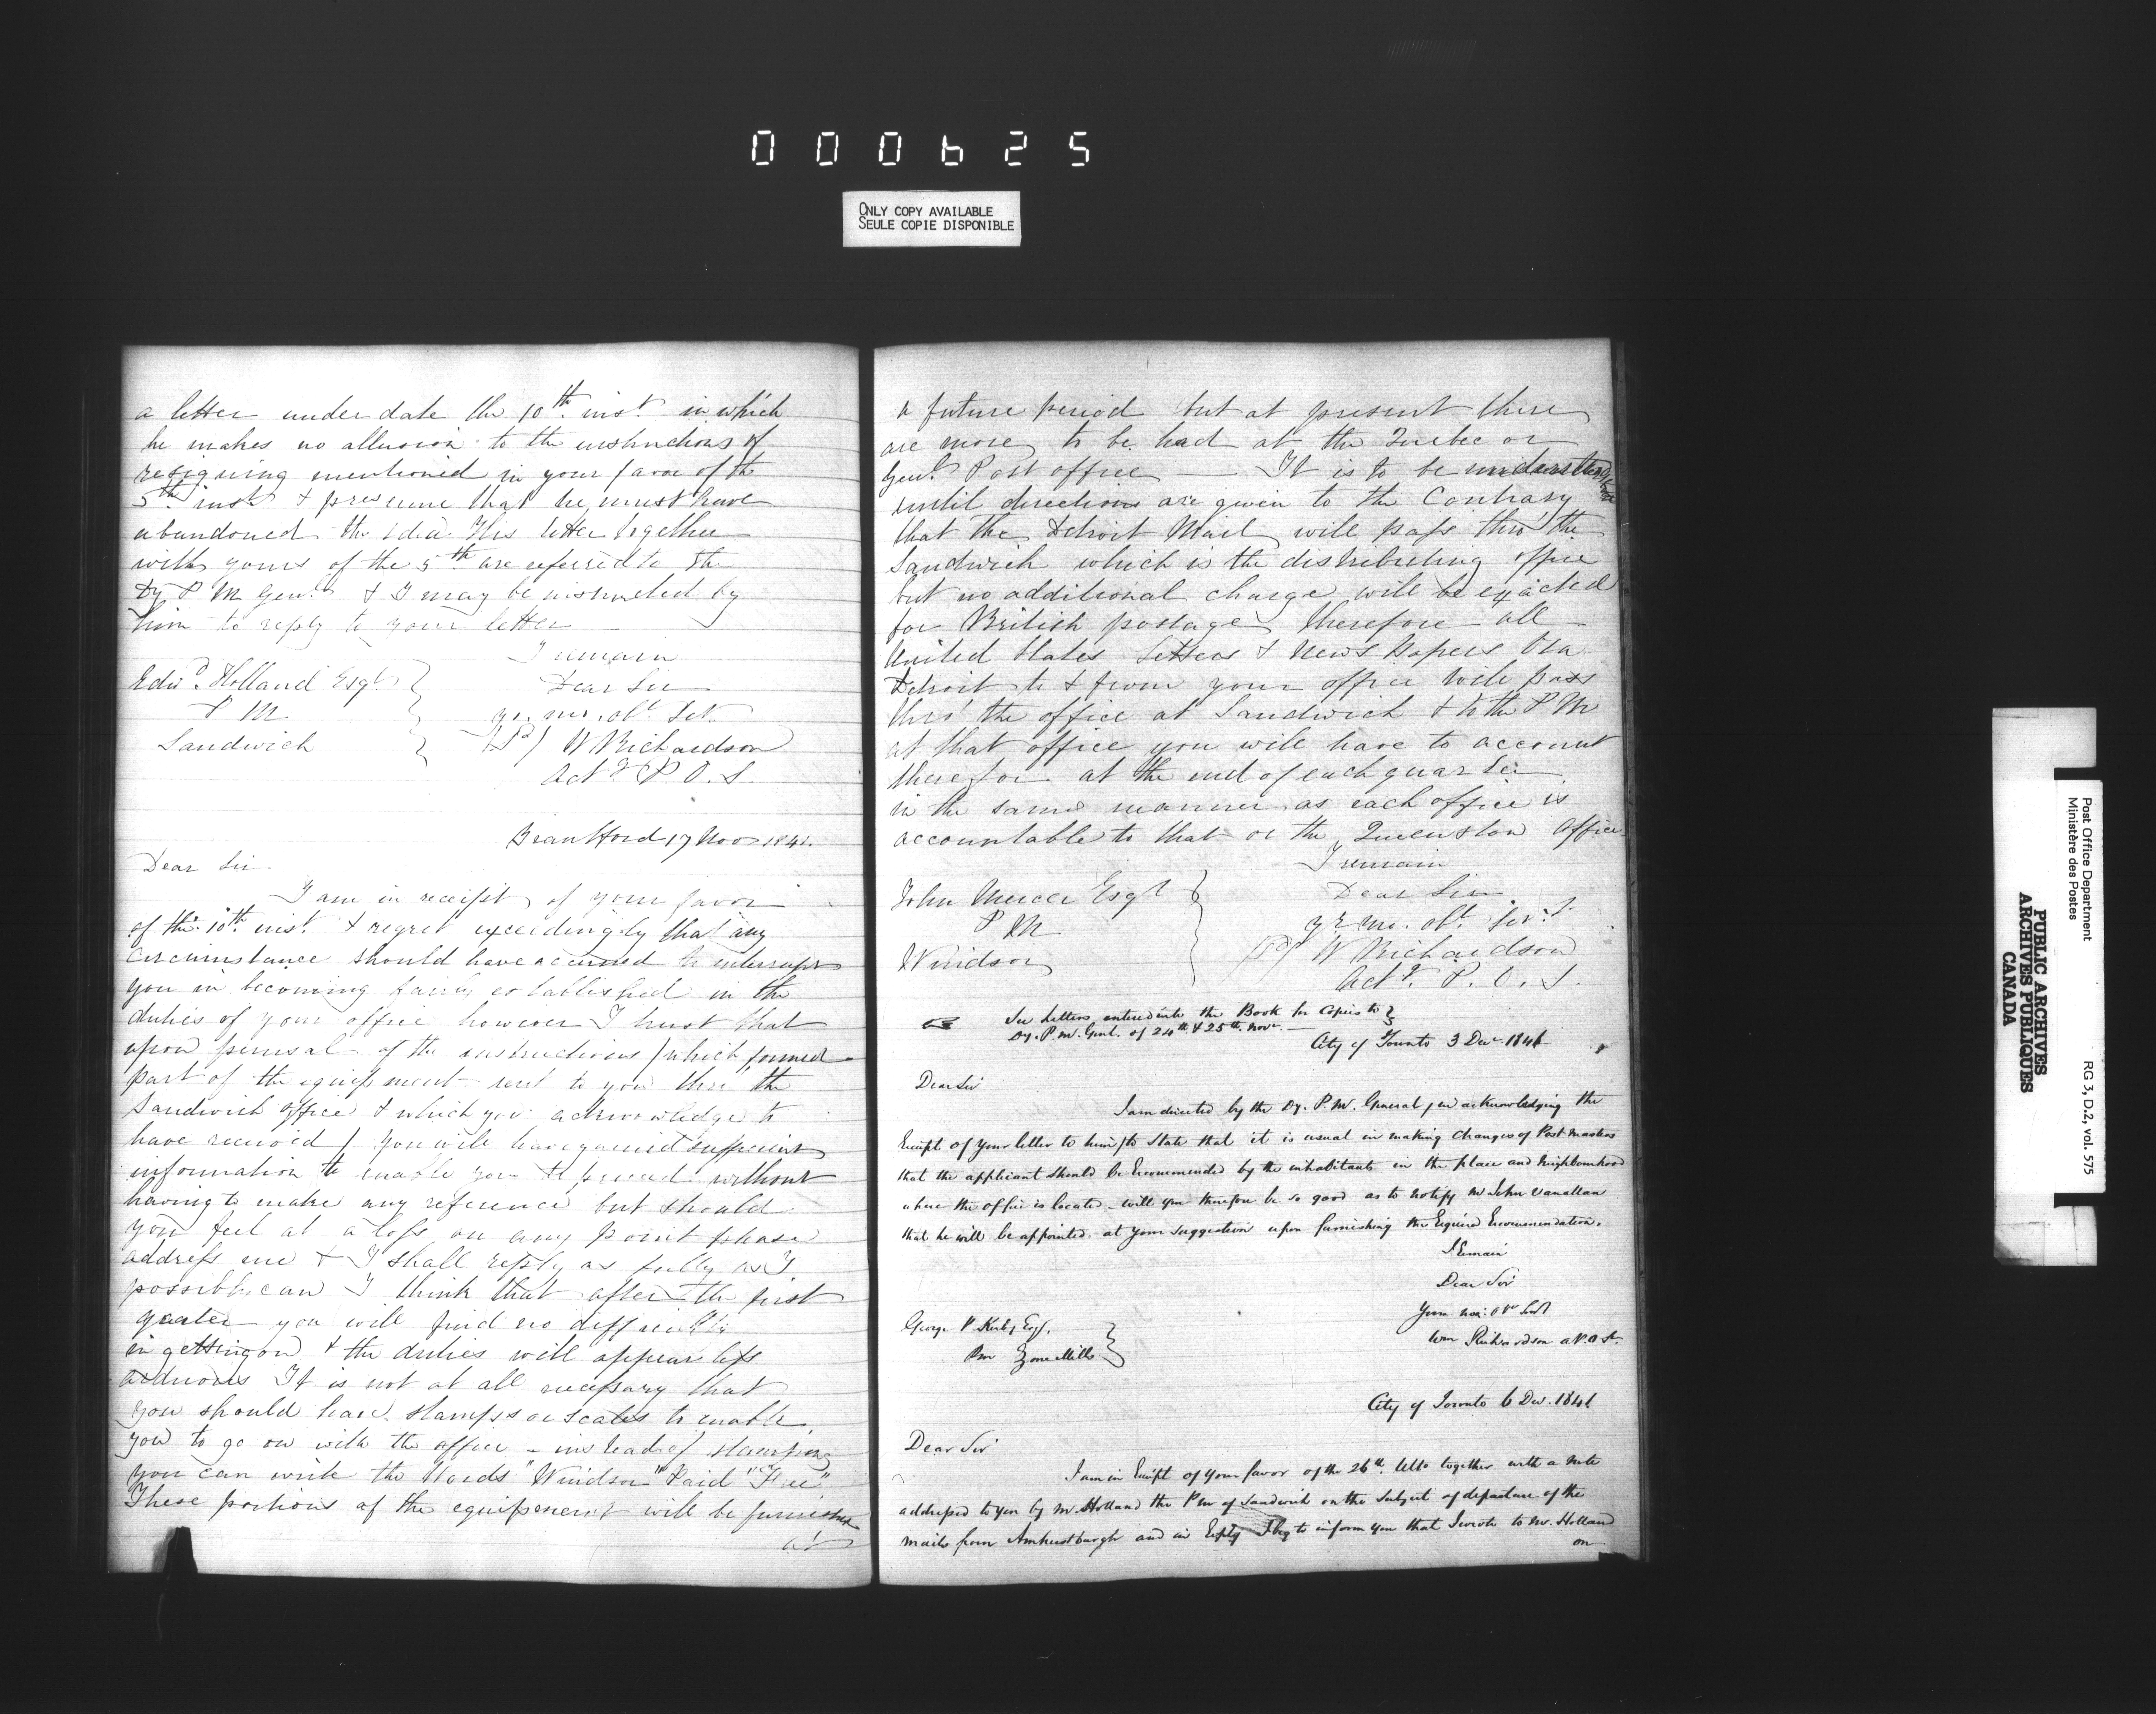 000625
ONLY COPY AVAILABLE
SEULE COPIE DISPONIBLE
a letter under date the 10th inst. in which
he makes no allusion to the instructions of
resigning mentioned in your favor of the
5th inst & presume that he must have
abandoned the idea. His letter together
with yours of the 5th are referred to the
Dy P M Genl. & I may be instructed by
him to reply to your letter
I remain
Edwd. Holland Esqr.
Dear Sir
P M
yr. mo. obt. Set.
Sandwich
W Richardson
Actg P. O. S.
Brantford 17 Nov 1841.
Dear Sir
I am in receipt of your favor
of the 10th inst. & regret exceedingly that any
circumstance should have occurred to interrupt
you in becoming fairly established in the
duties of your office however I trust that
upon perusal of the instructions / which formed
part of the equipment sent to you thro' the
Sandwich office & which you acknowledge to
have received / you will have gained sufficient
information to enable you to proceed without
having to make any reference but should
you feel at a loss on any point please
address me & I shall reply as fully as I
possibly can I think that after the first
quarter you will find no difficulty
in getting on & the duties will appear less
arduous It is not at all necessary that
you should have stamps or scales to enable
you to go on with the office - instead of stamping
you can write the Words "Windsor" "Paid" "Free"
These portions of the equipment will be furnished
at
a future period but at present there
are more to be had at the Quebec or
Genl. Post office — It is to be understood
until directions are given to the Contrary
that the Detroit Mail will pass thro' the
Sandwich which is the distributing office
but no additional charge will be exacted
for British postage, therefore all
United States Letters & News papers Via
Detroit to & from your office will pass
thro' the office at Sandwich & to the P M
at that office you will have to account
therefor at the end of each quarter
in the same manner as each office is
accountable to that or the Queenston Office
I remain
John Mercer Esqr
Dear Sir
P M
yr. mo. obt. Servt.
Windsor
W Richardson
Actg. P. O. S.
See Letters entered into the Book for Copies to
Dy. P. M. Genl. of 24th & 25th Novr. —
City of Toronto 3 Decr. 1841
Dear Sir
I am directed by the Dy. P. M. General / in acknowledging the
Receipt of your letter to him / to State that it is usual in making changes of Post Masters
that the applicant should be Recommended by the inhabitants in the place and Neighbourhood
where the office is located - will you therefore be so good as to notify Mr John Vanallan
that he will be appointed at your suggestion upon furnishing the Required Recommendation.
I Remain
Dear Sir
George P. Kerby Esqr.
Wm Richardson a P. O. S.
Pm Zone Mills
City of Toronto 6 Dec. 1841
Dear Sir
I am in Receipt of your favor of the 26th. Ulto together with a note
addressed to you by Mr. Holland the Pm of Sandwich on the Subject of departure of the
mails from Amherstburgh and in Reply I beg to inform you that I wrote to Mr. Holland
on
Post Office Department
Ministère des Postes
RG 3, D.2, vol. 575
PUBLIC ARCHIVES
ARCHIVES PUBLIQUES
CANADA